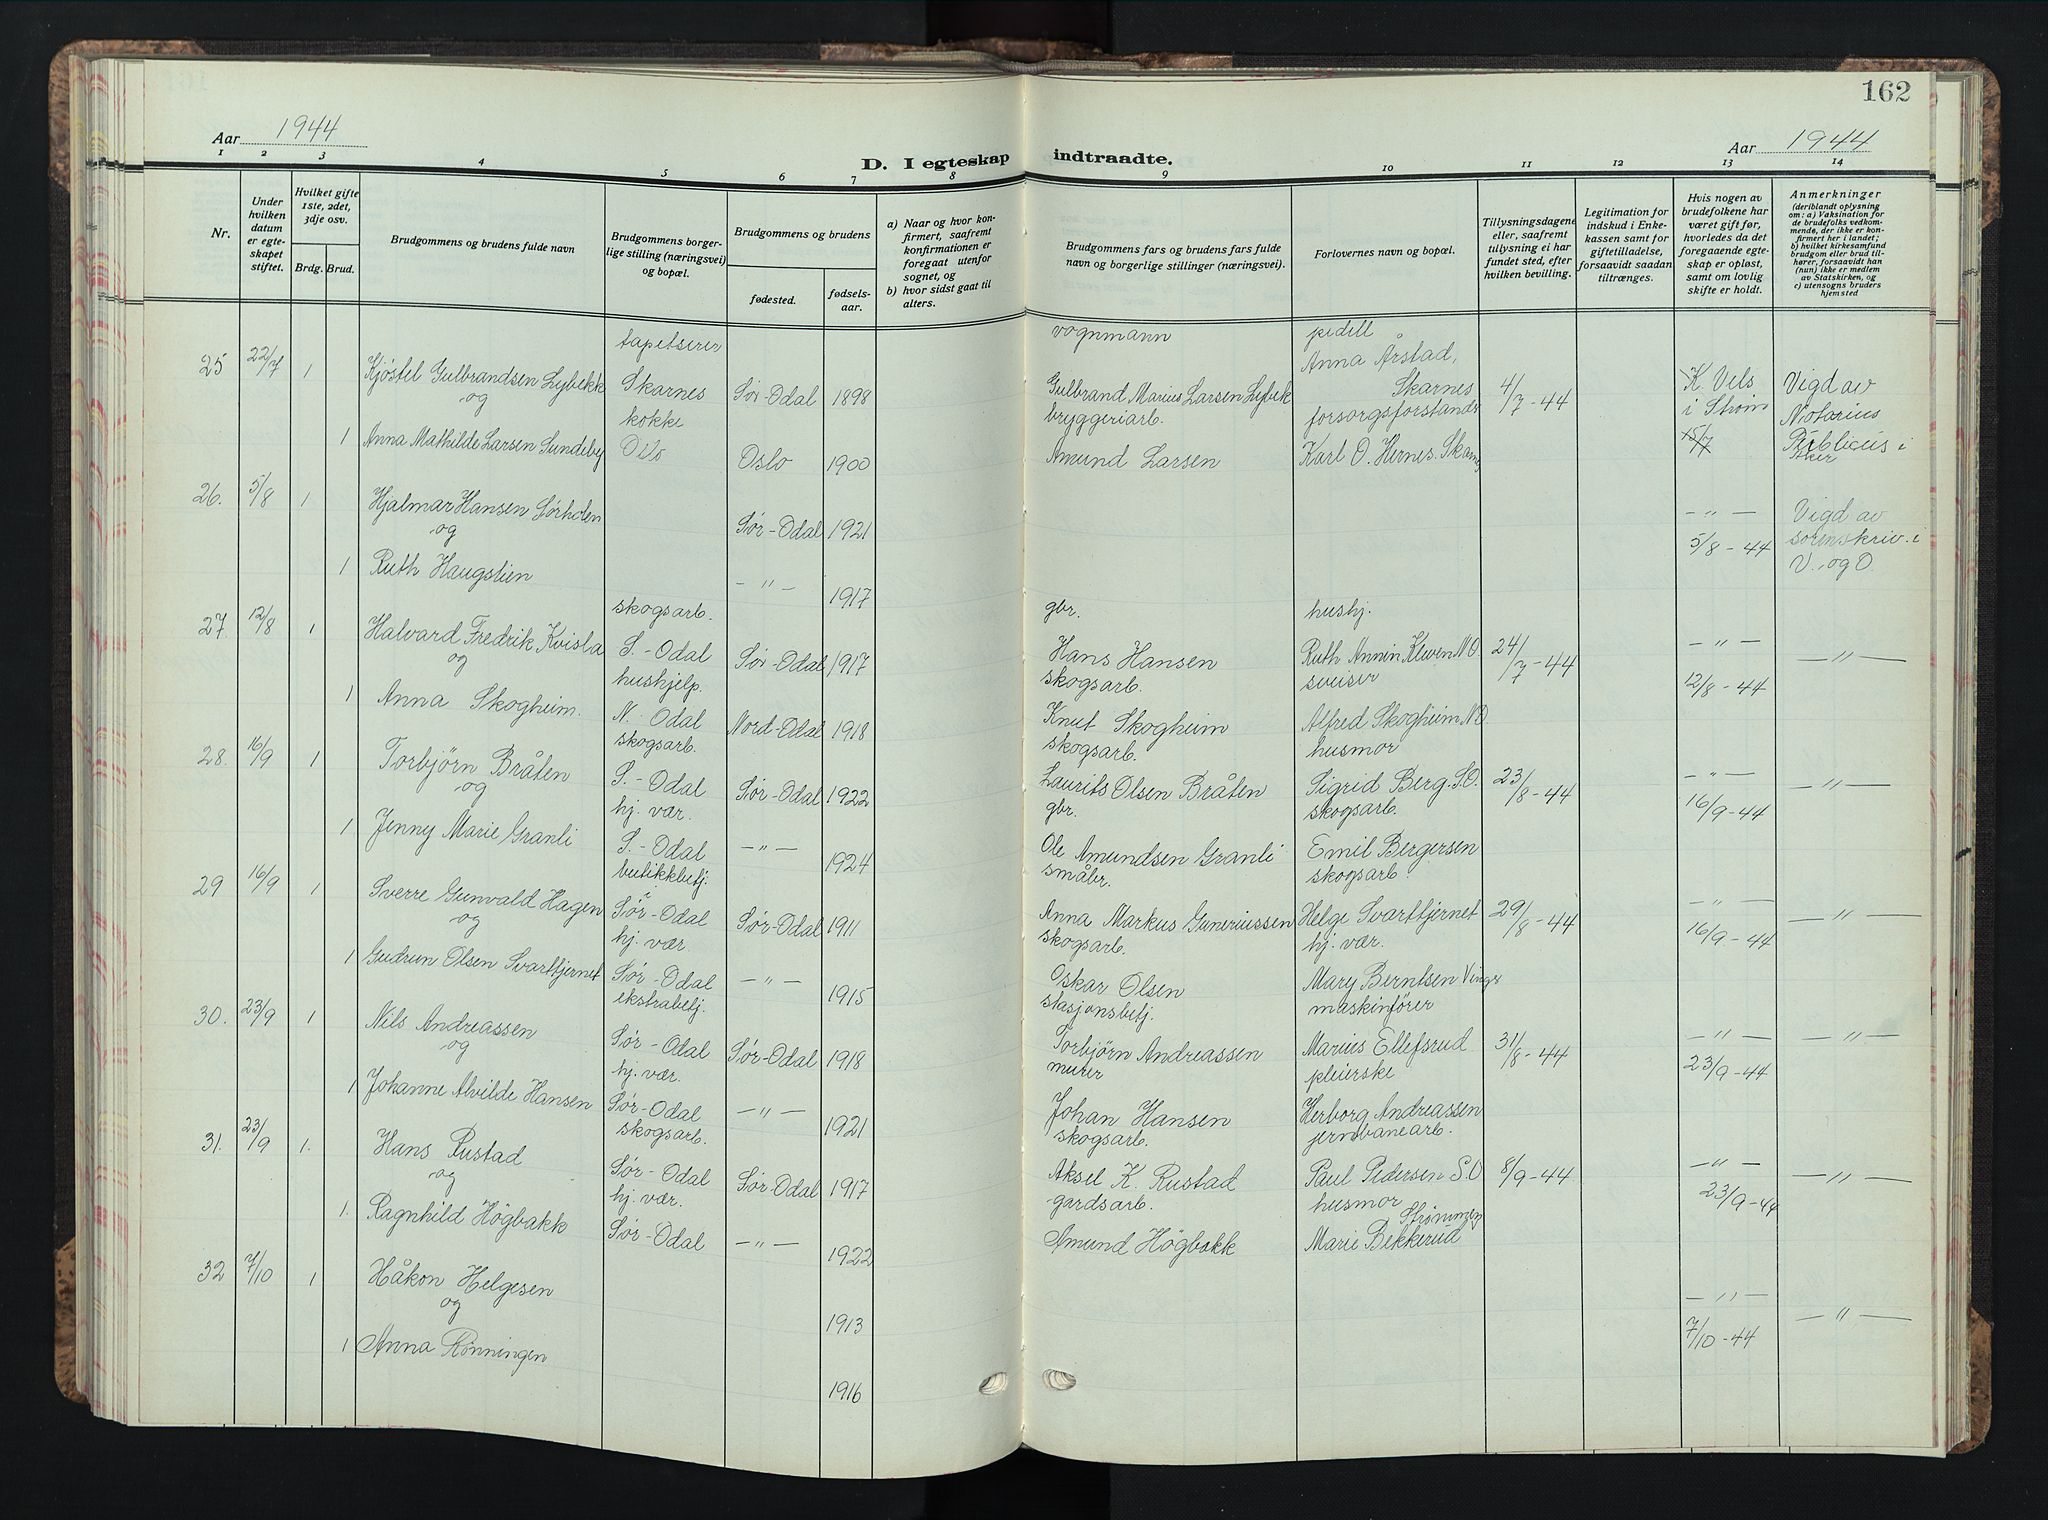 162
Aar 1944
D. I egteskap indtraadte.
Aar 1944
1 2 3 4 5 6 7 8 9 10 11 12 13 14
Nr.
Under hvilken datum er egteskapet stiftet.
Hvilket gifte 1ste, 2det, 3dje osv.
Brdg. Brud.
Brudgommens og brudens fulde navn
Brudgommens borgerlige stilling (næringsvei) og bopæl.
Brudgommens og brudens
fødested.
fødselsaar.
a) Naar og hvor konfirmert, saafremt konfirmationen er foregaat utenfor sognet, og
b) hvor sidst gaat til alters.
Brudgommens fars og brudens fars fulde navn og borgerlige stillinger (næringsvei).
Forlovernes navn og bopæl.
Tillysningsdagene eller, saafremt tillysning ei har fundet sted, efter hvilken bevilling.
Legitimation for indskud i Enkekassen samt for giftetilladelse, forsaavidt saadan tiltrænges.
Hvis nogen av brudefolkene har været gift før, hvorledes da det foregaaende egteskap er opløst, samt om lovlig skifte er holdt.
Anmerkninger (deriblandt oplysning om: a) Vaksination for de brudefolks vedkommende, der ikke er konfirmert her i landet; b) hvilket kirkesamfund brudgom eller brud tilhører, forsaavidt han (hun) ikke er medlem av Statskirken, og c) utensogns bruders hjemsted
tapetserer vognmann pedell
25 22/7 1 Kjøstel Gulbrandsen Lybekk Skarnes Sør-Odal 1898 Gulbrand Marius Larsen Lybek Anna Årstad, Skarnes 4/7-44 K. Vels i Strøm Vigd av Notarius
og kokke bryggeriarb. forsorgsforstander
1 Anna Mathilde Larsen Sundeby Oslo Oslo 1900 Amund Larsen Karl O. Hernes. Skarnes 15/7 Publicus i Aker
26. 5/8 1 Hjalmar Hansen Sørholen Sør-Odal 1921 - " - Vigd av
og 5/8-44 sorenskriv. i
1 Ruth Haugstien - " - 1917 V. og O
skogsarb. gbr. hushj.
27 12/8 1 Halvard Fredrik Kvisla S.-Odal Sør-Odal 1917 Hans Hansen Ruth Annin Kleven N O 24/7-44 - " - - " -
og hushjelp. skogsarb. sveiser 12/8-44
1 Anna Skogheim. N.-Odal Nord-Odal 1918 Knut Skogheim Alfred Skogheim N O.
skogsarb. skogsarb. husmor
28. 16/9 1 Torbjørn Bråten S.-Odal Sør-Odal 1922 Laurits Olsen Bråten Sigrid Berg. S.O. 23/8-44 - " - - " -
og hj. vær. gbr. skogsarb. 16/9-44
1 Jenny Marie Granli S.-Odal - " - 1924 Ole Amundsen Granli Emil Bergersen
butikkbetj. småbr. skogsarb.
29 16/9 1 Sverre Gunvald Hagen Sør-Odal Sør-Odal 1911 Anna Markus Guneriussen Helge Svarttjernet 29/8-44 - " - - " -
og hj. vær. skogsarb. hj. vær. 16/9-44
1 Gudrun Olsen Svarttjernet Sør-Odal - " - 1915 Oskar Olsen Mary Berntsen Vinger
ekstrabetj. stasjonsbetj. maskinfører
30. 23/9 1 Nils Andreassen Sør-Odal Sør-Odal 1918 Torbjørn Andreassen Marius Ellefsrud 31/8-44 - " - - " -
og hj. vær. murer pleierske 23/9-44
1 Johanne Alvilde Hansen Sør-Odal - " - 1921 Johan Hansen Herborg Andreassen
skogsarb. skogsarb. jernbanearb.
31. 23/9 1. Hans Rustad Sør-Odal Sør-Odal 1917 Aksel K. Rustad Paul Pedersen S.O 8/9-44 - " - - " -
og hj. vær. gardsarb. husmor 23/9-44
1. Ragnhild Högbakk Sør-Odal - " - 1922 Amund Högbakk Marie Bekkerud Strømmen
32 7/10 1 Håkon Helgesen 1913 - " - - " -
og 7/10-44
1 Anna Rønningen 1916